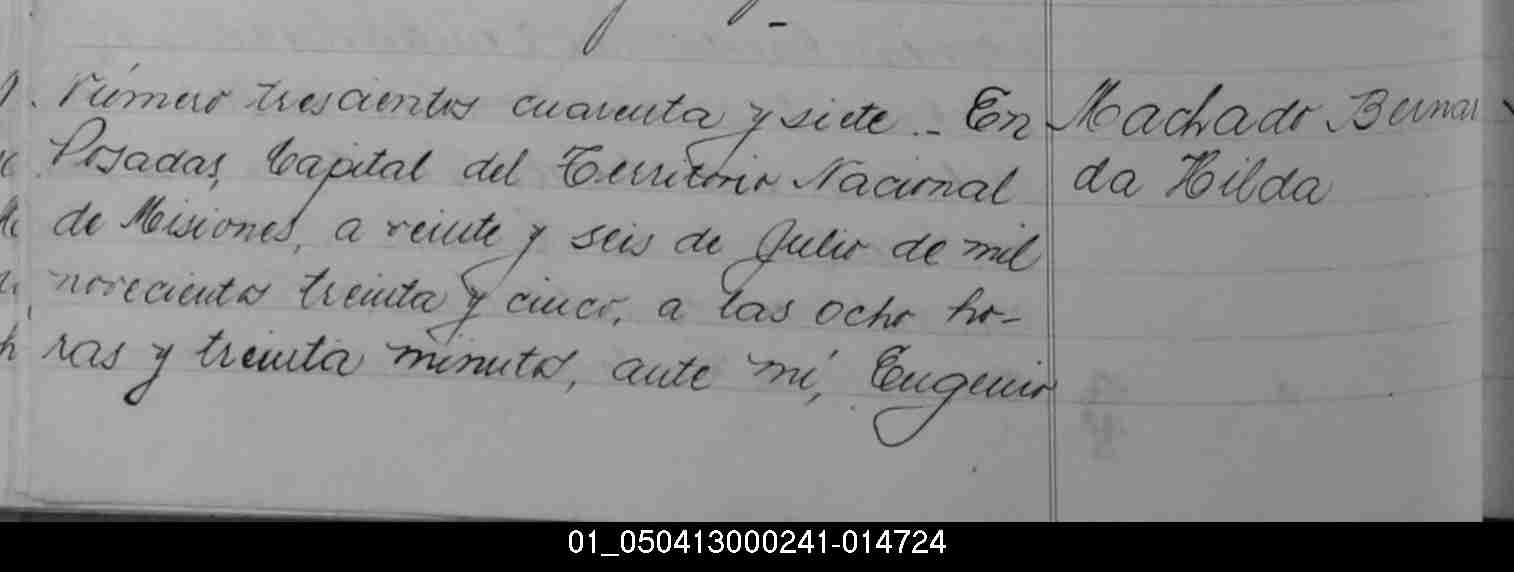 Número trescientos cuarenta y siete.- En
Posadas, Capital del Territorio Nacional
de Misiones, a veinte y seis de Julio de mil
novecientos treinta y cinco, a las ocho ho-
ras y treinta minutos, ante mí, Eugenio
Machado Bernar
da Hilda
01_050413000241-014724